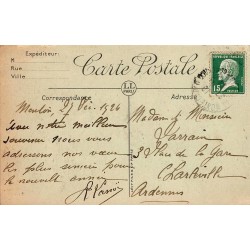 Expéditeur:
M
Rue
Ville
Carte Postale
LL
15
Correspondance
Adresse
Menton, 27 Déc. 1924
Avec notre meilleur
souvenir nous vous
adressons nos vœux
les plus sincères pour
la nouvelle année
Madame & Monsieur
Rue de la Gare
Charleville
Ardennes